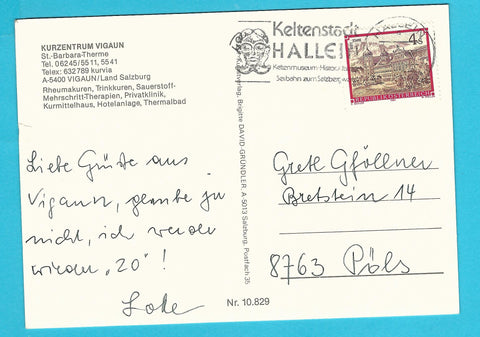 KURZENTRUM VIGAUN
St.-Barbara-Therme
Tel. 06245/5511, 5541
Telex: 632789 kurvia
A-5400 VIGAUN/Land Salzburg
Rheumakuren, Trinkkuren, Sauerstoff-
Mehrschritt-Therapien, Privatklinik,
Kurmittelhaus, Hotelanlage, Thermalbad
Liebe Grüße aus
Vigaun, glaube ja
nicht, ich werde
wieder „20"!
Lotte
Verlag, Brigitte DAVID-GRÜNDLER, A-5013 Salzburg, Postfach 35
Nr. 10,829
Keltenstadt
HALLEIN
Keltenmuseum
Seilbahn zum Salzberg
4 S
REPUBLIK ÖSTERREICH
Gretl Gföllner
Bretstein 14
8763 Pöls